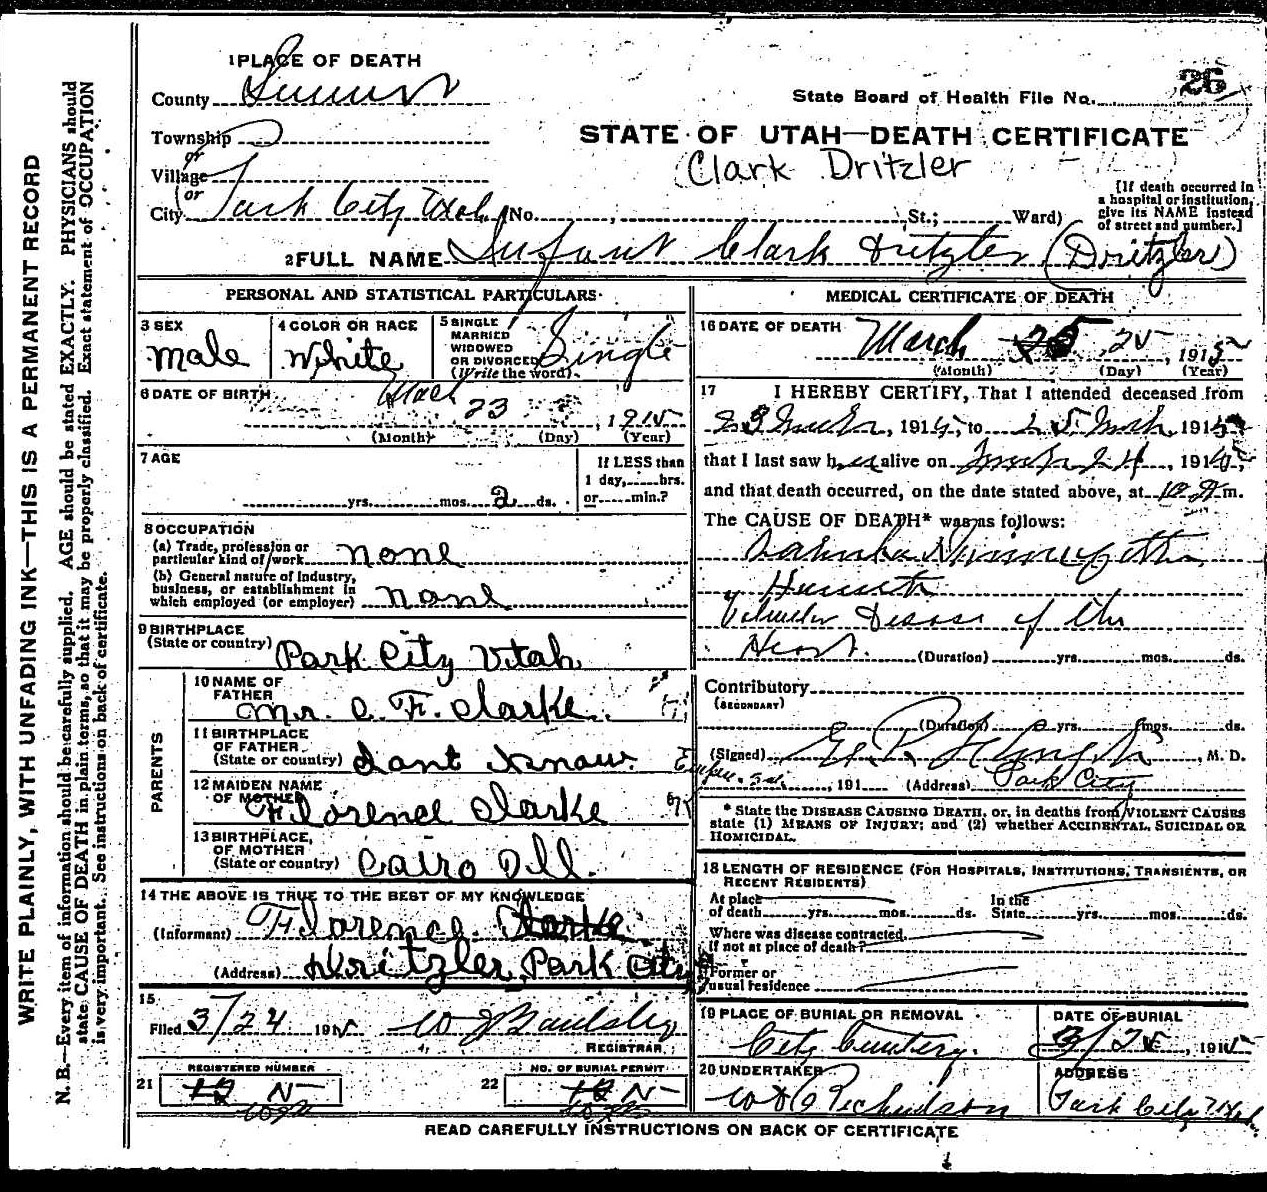 WRITE PLAINLY, WITH UNFADING INK—THIS IS A PERMANENT RECORD
N. B.—Every item of information should be carefully supplied. AGE should be stated EXACTLY. PHYSICIANS should
state CAUSE OF DEATH in plain terms, so that it may be properly classified. Exact statement of OCCUPATION
is very important. See instructions on back of certificate.
1 PLACE OF DEATH
County Summit
State Board of Health File No. 26
Township
or
Village
or
STATE OF UTAH—DEATH CERTIFICATE
Clark Dritzler
City Park City Utah No. , St.; Ward)
[If death occurred in
a hospital or institution,
give its NAME instead
of street and number.]
2 FULL NAME Infant Clark Dritzler (Dritzler)
PERSONAL AND STATISTICAL PARTICULARS
3 SEX
Male
4 COLOR OR RACE
White
5 SINGLE
MARRIED
WIDOWED
OR DIVORCED
(Write the word)
Single
6 DATE OF BIRTH
23 , 1915
(Month) (Day) (Year)
7 AGE
yrs. mos. 2 ds.
If LESS than
1 day, hrs.
or min.?
8 OCCUPATION
(a) Trade, profession or
particular kind of work none
(b) General nature of Industry,
business, or establishment in
which employed (or employer) none
9 BIRTHPLACE
(State or country) Park City Utah
PARENTS
10 NAME OF
FATHER
Mr. C. F. Clarke
11 BIRTHPLACE
OF FATHER
(State or country) Dont Know.
12 MAIDEN NAME
OF MOTHER
Florence Clarke
13 BIRTHPLACE,
OF MOTHER
(State or country) Cairo Ill.
14 THE ABOVE IS TRUE TO THE BEST OF MY KNOWLEDGE
(Informant) Florence Clarke
(Address) Dritzler Park City
15
Filed 3/24 1915
REGISTRAR
REGISTERED NUMBER
21
NO. OF BURIAL PERMIT
22
MEDICAL CERTIFICATE OF DEATH
16 DATE OF DEATH
March 25 , 1915
(Month) (Day) (Year)
17 I HEREBY CERTIFY, That I attended deceased from
23 March, 1915, to 25 Mch, 1915
that I last saw h alive on March 24, 1915,
and that death occurred, on the date stated above, at m.
The CAUSE OF DEATH* was as follows:
disease of the
Heart. (Duration) yrs. mos. ds.
Contributory
(SECONDARY)
(Duration) yrs. mos. ds.
(Signed) M. D.
, 191 (Address) Park City
* State the DISEASE CAUSING DEATH, or, in deaths from VIOLENT CAUSES
state (1) MEANS OF INJURY; and (2) whether ACCIDENTAL, SUICIDAL OR
HOMICIDAL.
18 LENGTH OF RESIDENCE (FOR HOSPITALS, INSTITUTIONS, TRANSIENTS, OR
RECENT RESIDENTS)
At place
of death yrs. mos. ds.
In the
State yrs. mos. ds.
Where was disease contracted,
If not at place of death?
Former or
usual residence
19 PLACE OF BURIAL OR REMOVAL
City Cemetery.
DATE OF BURIAL
3/25, 1915
20 UNDERTAKER
Richardson
ADDRESS
Park City Utah.
READ CAREFULLY INSTRUCTIONS ON BACK OF CERTIFICATE